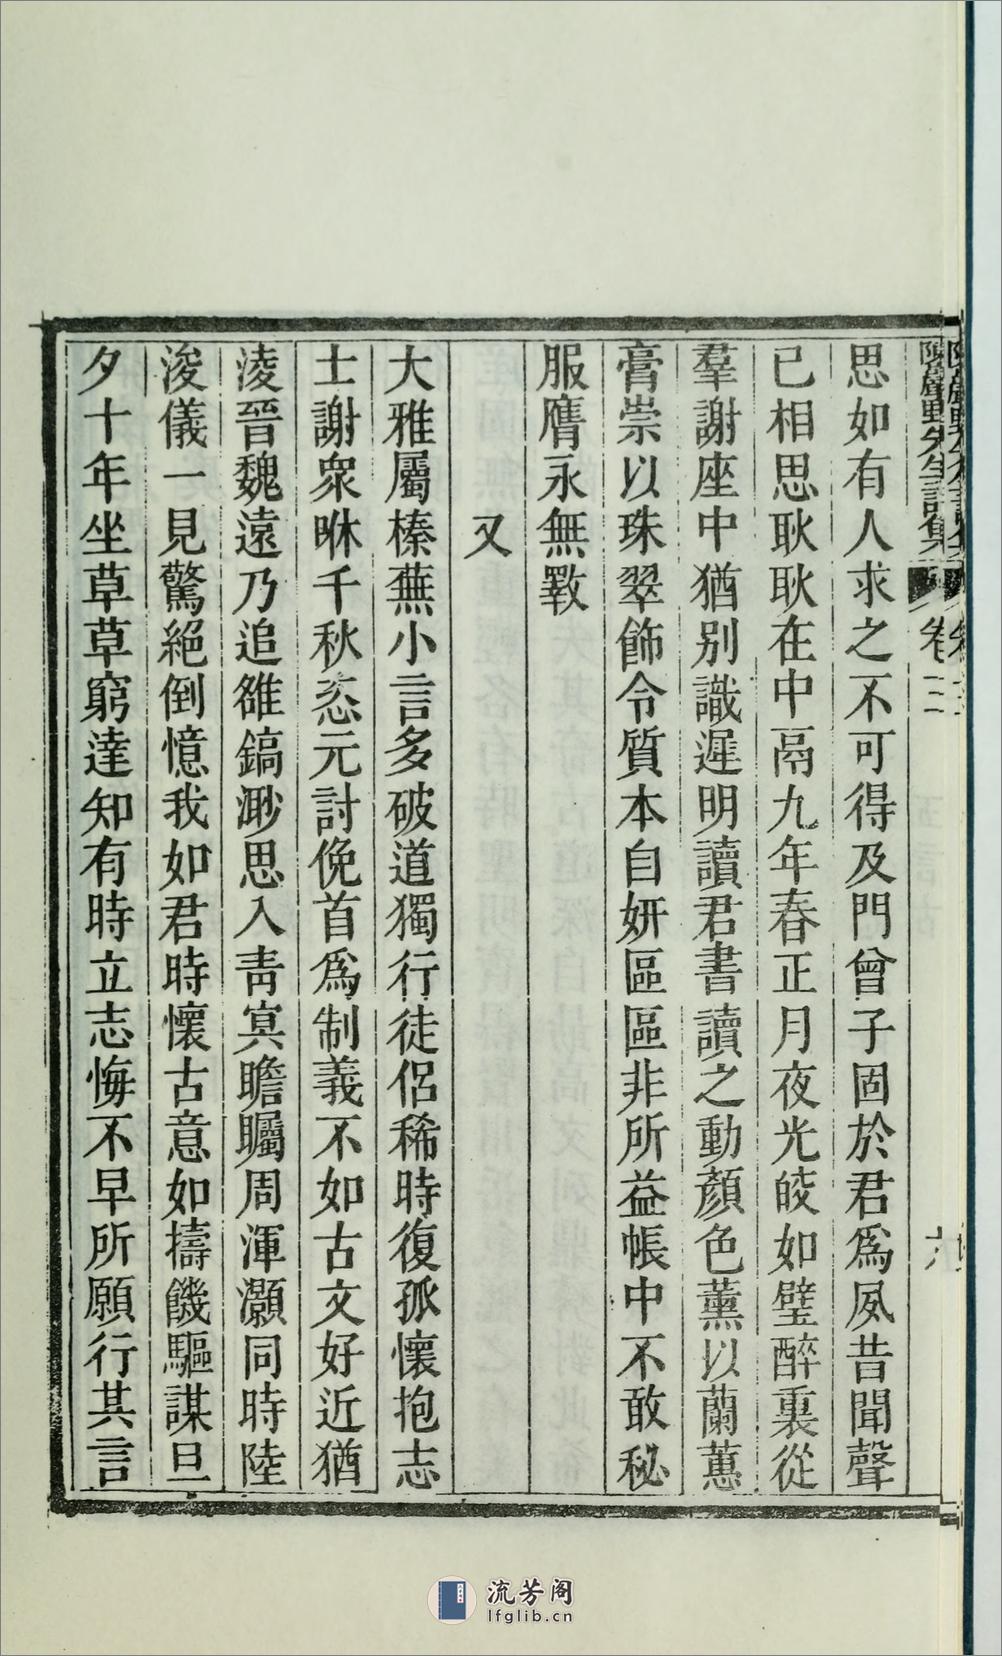 陳巖野先生詩集 卷二 六
思如有人求之不可得及門曾子固於君爲夙昔聞聲
已相思耿耿在中鬲九年春正月夜光皎如璧醉裏從
羣謝座中猶別識遲明讀君書讀之動顏色薰以蘭蕙
膏崇以珠翠飾令質本自妍區區非所益帳中不敢秘
服膺永無斁
又
大雅屬榛蕪小言多破道獨行徒侶稀時復孤懷抱志
士謝衆咻千秋恣元討俛首爲制義不如古文好近猶
淩晉魏遠乃追雒鎬渺思入靑冥瞻矚周渾灝同時陸
浚儀一見驚絕倒憶我如君時懷古意如擣饑驅謀旦
夕十年坐草草窮達知有時立志悔不早所願行其言
流芳阁
lfglib.cn